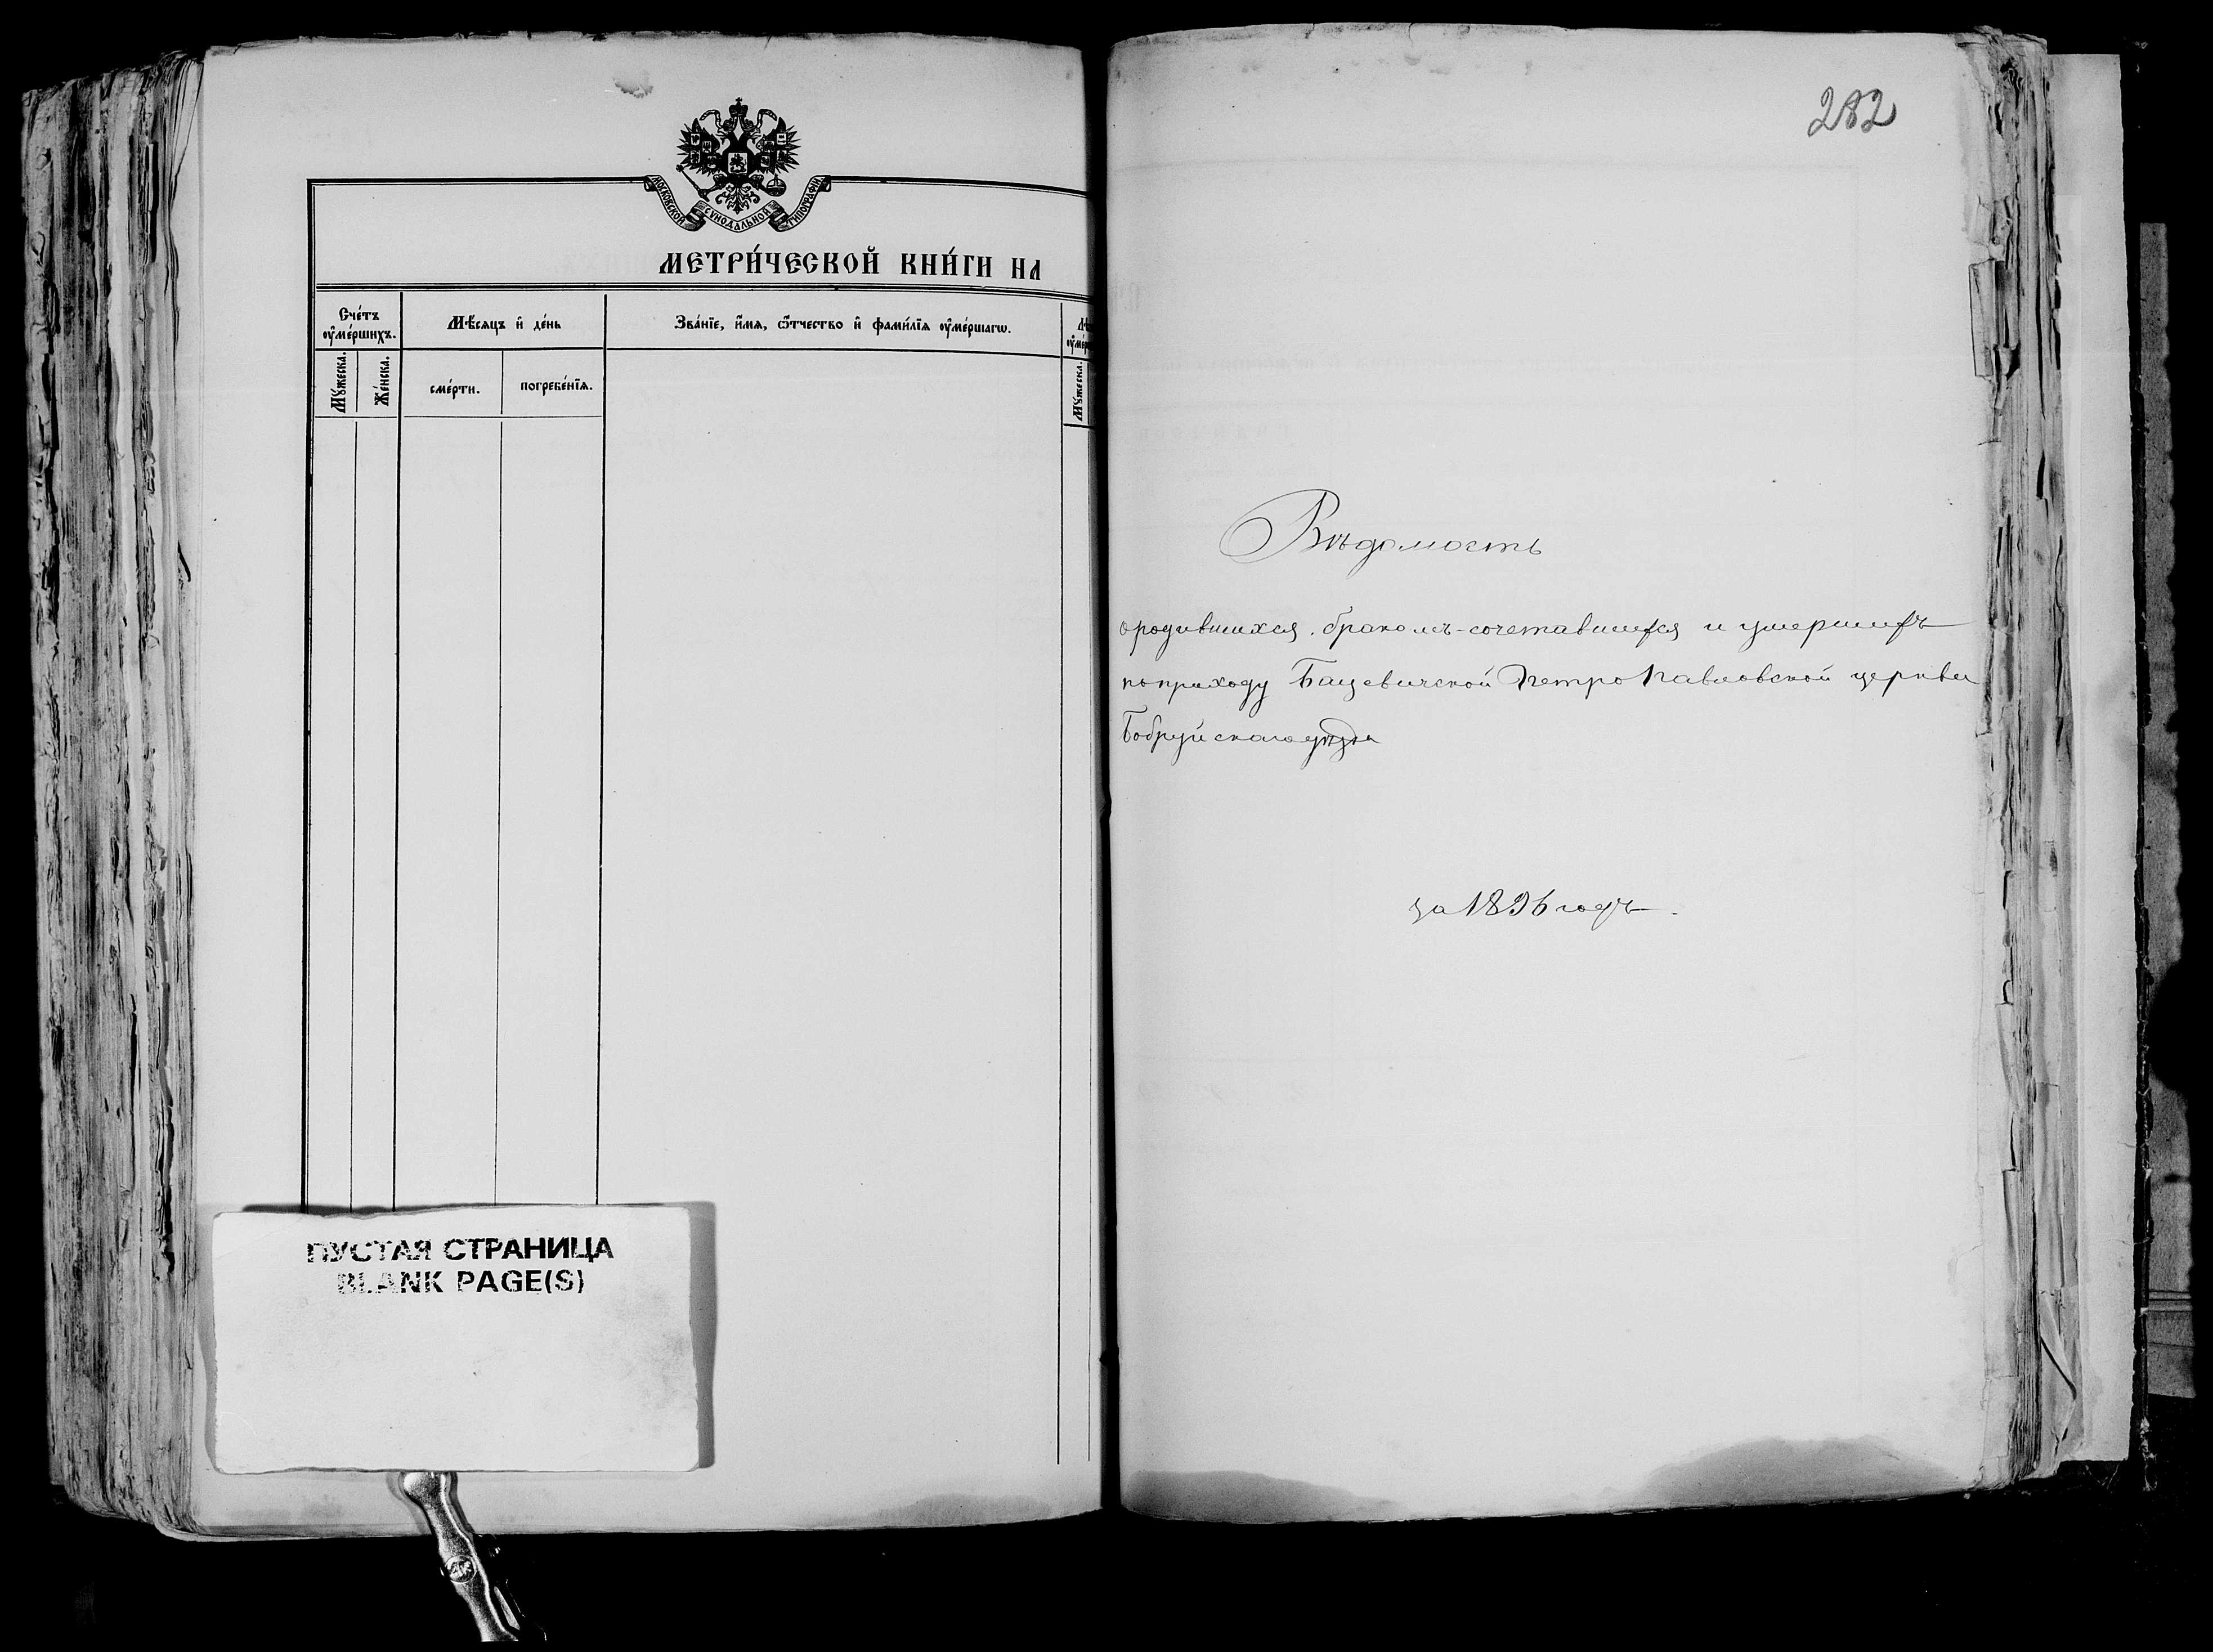 МОСКОВСКОЙ СѴНОДАЛЬНОЙ ТИПОГРАФІИ
МЕТРИ́ЧЕСКОЙ КНИ́ГИ НА
Сче́тъ ᲂу҆ме́ршихъ.
Мѣ́сяцъ и҆ де́нь
Зва́нїе, и҆́мѧ, ѻ҆́тчество и҆ фами́лїѧ ᲂу҆ме́ршагѡ.
Мꙋ́жеска.
Же́нска.
сме́рти.
погребе́нїѧ.
Мꙋ́жеска.
ПУСТАЯ СТРАНИЦА
BLANK PAGE(S)
282
Вѣдомость
о родившихся, бракомъ-сочетавшихся и умершихъ
по приходу Бацевичской Петро Павловской церкви
Бобруйскаго уѣзда
за 1896 годъ.